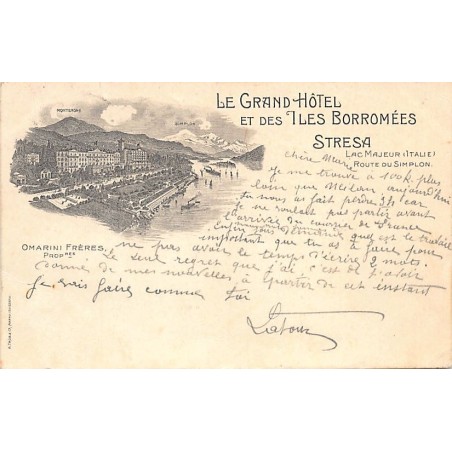 MOTTERONE
SIMPLON
LE GRAND-HÔTEL
ET DES ILES BORROMÉES
STRESA
LAC MAJEUR (ITALIE)
ROUTE DU SIMPLON.
OMARINI FRÈRES,
PROP.RES
Chère
Je me trouve à 100 k. plus
loin que Milan aujourd'hui
tu nous as fait perdre car
je ne voulait pas partir avant
l'arrivée du courrier de France
Enfin quel est le travail
important que tu as à faire pour
ne pas avoir le temps d'écrire 2 mots.
Le seul regret que j'ai c'est de t'avoir
donné de mes nouvelles à partir de cet instant
Je vais faire comme toi